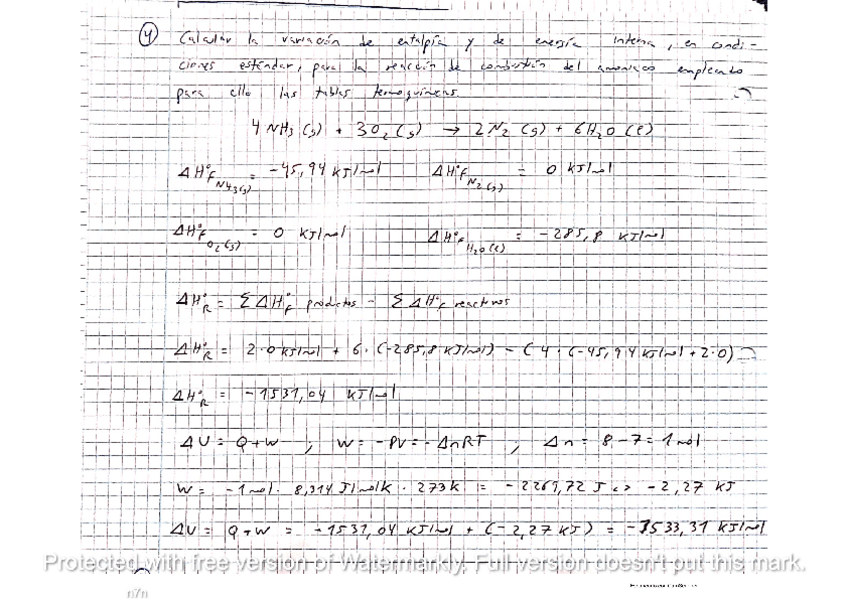 4) Calcular la variación de entalpía y de energía interna, en condi-
ciones estándar, para la reacción de combustión del amoniaco empleando
para ello las tablas termoquímicas.
4 NH3 (g) + 3O2 (g) → 2N2 (g) + 6H2O (l)
ΔH°f NH3(g) = -45,94 KJ/mol ΔH°f N2(g) = 0 KJ/mol
ΔH°f O2(g) = 0 KJ/mol ΔH°f H2O(l) = -285,8 KJ/mol
ΔH°R = ΣΔH°f productos - ΣΔH°f reactivos
ΔH°R = 2·0 KJ/mol + 6·(-285,8 KJ/mol) - (4·(-45,94 KJ/mol + 2·0)
ΔH°R = -1531,04 KJ/mol
ΔU = Q+W ; W = -PV = -ΔnRT ; Δn = 8-7 = 1 mol
W = -1 mol · 8,314 J/molK · 273K = -2269,72 J <> -2,27 KJ
ΔU = Q+W = -1531,04 KJ/mol + (-2,27 KJ) = -1533,31 KJ/mol
Protected with free version of Watermarkly. Full version doesn't put this mark.